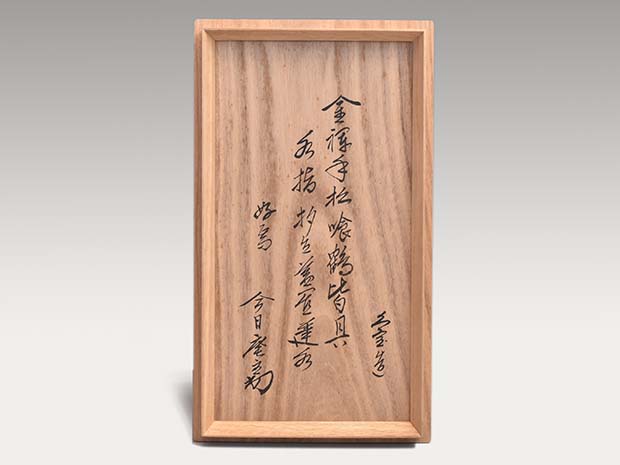 造
金襴手松喰鶴皆具
水指杓立蓋置建水
好
今日庵